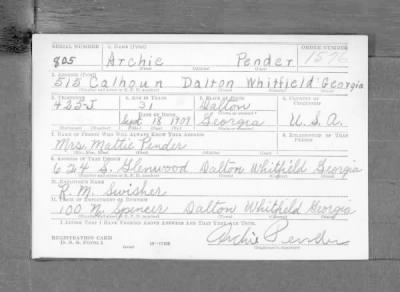 SERIAL NUMBER 1. NAME (Print) ORDER NUMBER
805 Archie Pender 1576
(First) (Middle) (Last)
2. ADDRESS (Print)
515 Calhoun Dalton Whitfield Georgia
3. TELEPHONE 4. AGE IN YEARS 5. PLACE OF BIRTH 6. COUNTRY OF CITIZENSHIP
435-J 31 Dalton
DATE OF BIRTH
Sept 18 1909 Georgia U.S.A.
7. NAME OF PERSON WHO WILL ALWAYS KNOW YOUR ADDRESS 8. RELATIONSHIP OF THAT PERSON
Mrs. Mattie Pender
9. ADDRESS OF THAT PERSON
624 S. Glenwood Dalton Whitfield Georgia
10. EMPLOYER'S NAME
R. M. Swisher
11. PLACE OF EMPLOYMENT OR BUSINESS
100 N. Spencer Dalton Whitfield Georgia
I AFFIRM THAT I HAVE VERIFIED ABOVE ANSWERS AND THAT THEY ARE TRUE.
REGISTRATION CARD
D. S. S. Form 1 Archie Pender